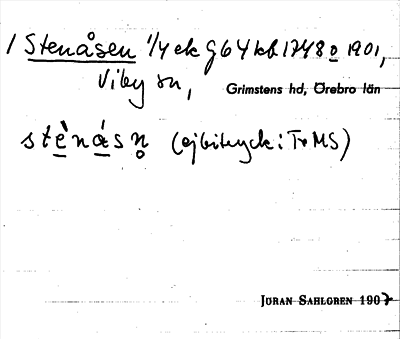 1 Stenåsen 1/4 ek g 64 kb 1748 o 1901,
Viby sn,
Grimstens hd, Örebro län
stènásn (ej bitryck: Tr MS)
JÖRAN SAHLGREN 1907